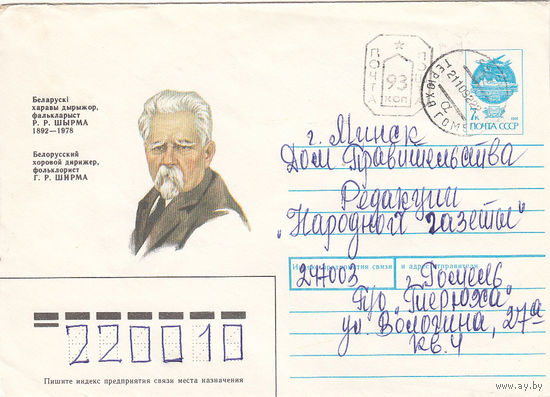 Беларускі
харавы дырыжор,
фалькларыст
Р. Р. ШЫРМА
1892—1978
Белорусский
хоровой дирижер,
фольклорист
Г. Р. ШИРМА
ПОЧТА
ПОШТА
93
КОП
ТЕРЮХА
211092
ГОМЕЛ
7к
ПОЧТА СССР
г. Минск
Дом Правительства
Редакции
"Народной газеты"
Индекс предприятия связи и адрес отправителя
247003 г. Гомель
Гпо "Терюха"
ул. Вологина, 27а
кв. 4
220010
Пишите индекс предприятия связи места назначения
www.ay.by